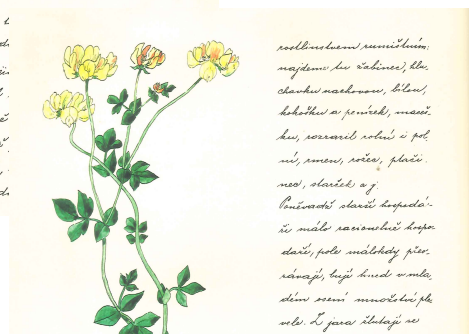 rostlinstvem rumištním:
najdeme tu žabinec, hlu-
chavku nachovou, bílou,
kokošku a penízek, maceš-
ku, rozrazil rolní i pol-
ní, rmen, rožec, ptači-
nec, starček a j.
Poněvadž starší hospodá-
ři málo racionelně hospo-
daří, pole málokdy přeo-
rávají, bují hned v mla-
dém osení množství ple-
vele. Z jara žlutají se